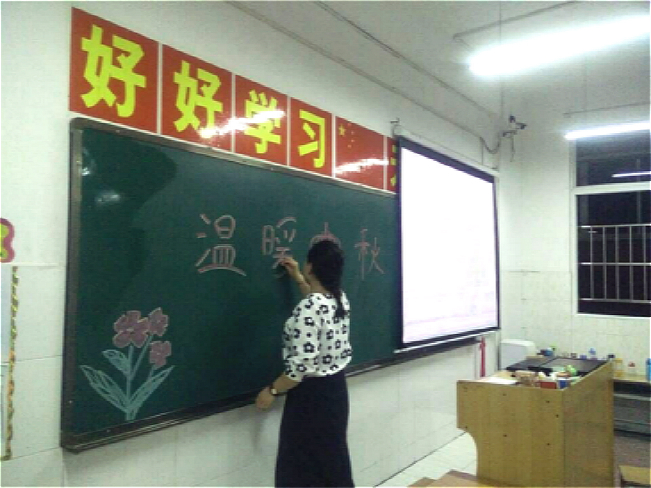 好好学习
温暖中秋